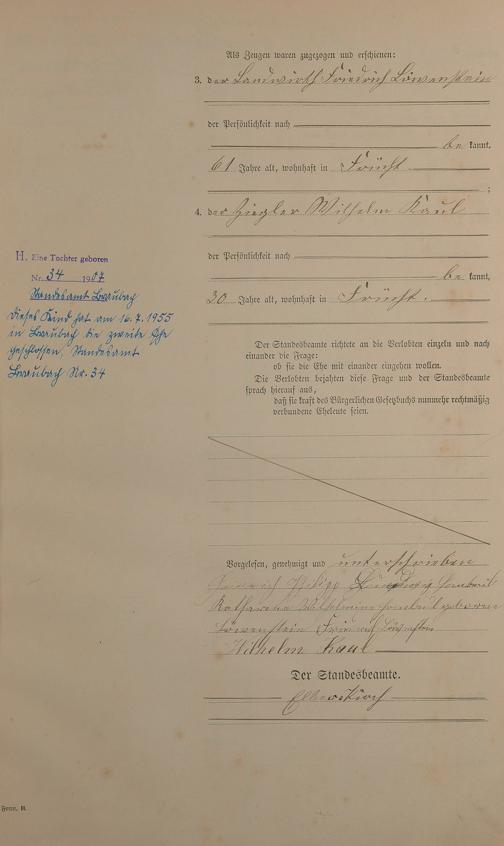 Als Zeugen waren zugezogen und erschienen:
3. der Landwirth Friedrich Löwenstein
der Persönlichkeit nach
be kannt,
61 Jahre alt, wohnhaft in Frücht
;
4. der Ziegler Wilhelm Kaul
der Persönlichkeit nach
be kannt,
30 Jahre alt, wohnhaft in Frücht.
H. Eine Tochter geboren
Nr. 34 1907
Standesamt Braubach
Dieses Kind hat am 16.7.1955
in Braubach die zweite Ehe
geschlossen. Standesamt
Braubach Nr. 34
Der Standesbeamte richtete an die Verlobten einzeln und nach
einander die Frage:
ob sie die Ehe mit einander eingehen wollen.
Die Verlobten bejahten diese Frage und der Standesbeamte
sprach hierauf aus,
daß sie kraft des Bürgerlichen Gesetzbuchs nunmehr rechtmäßig
verbundene Eheleute seien.
Vorgelesen, genehmigt und unterschrieben
Katharina Wilhelmine geborene
Löwenstein Friedrich Löwenstein
Wilhelm Kaul
Der Standesbeamte.
Form. B.